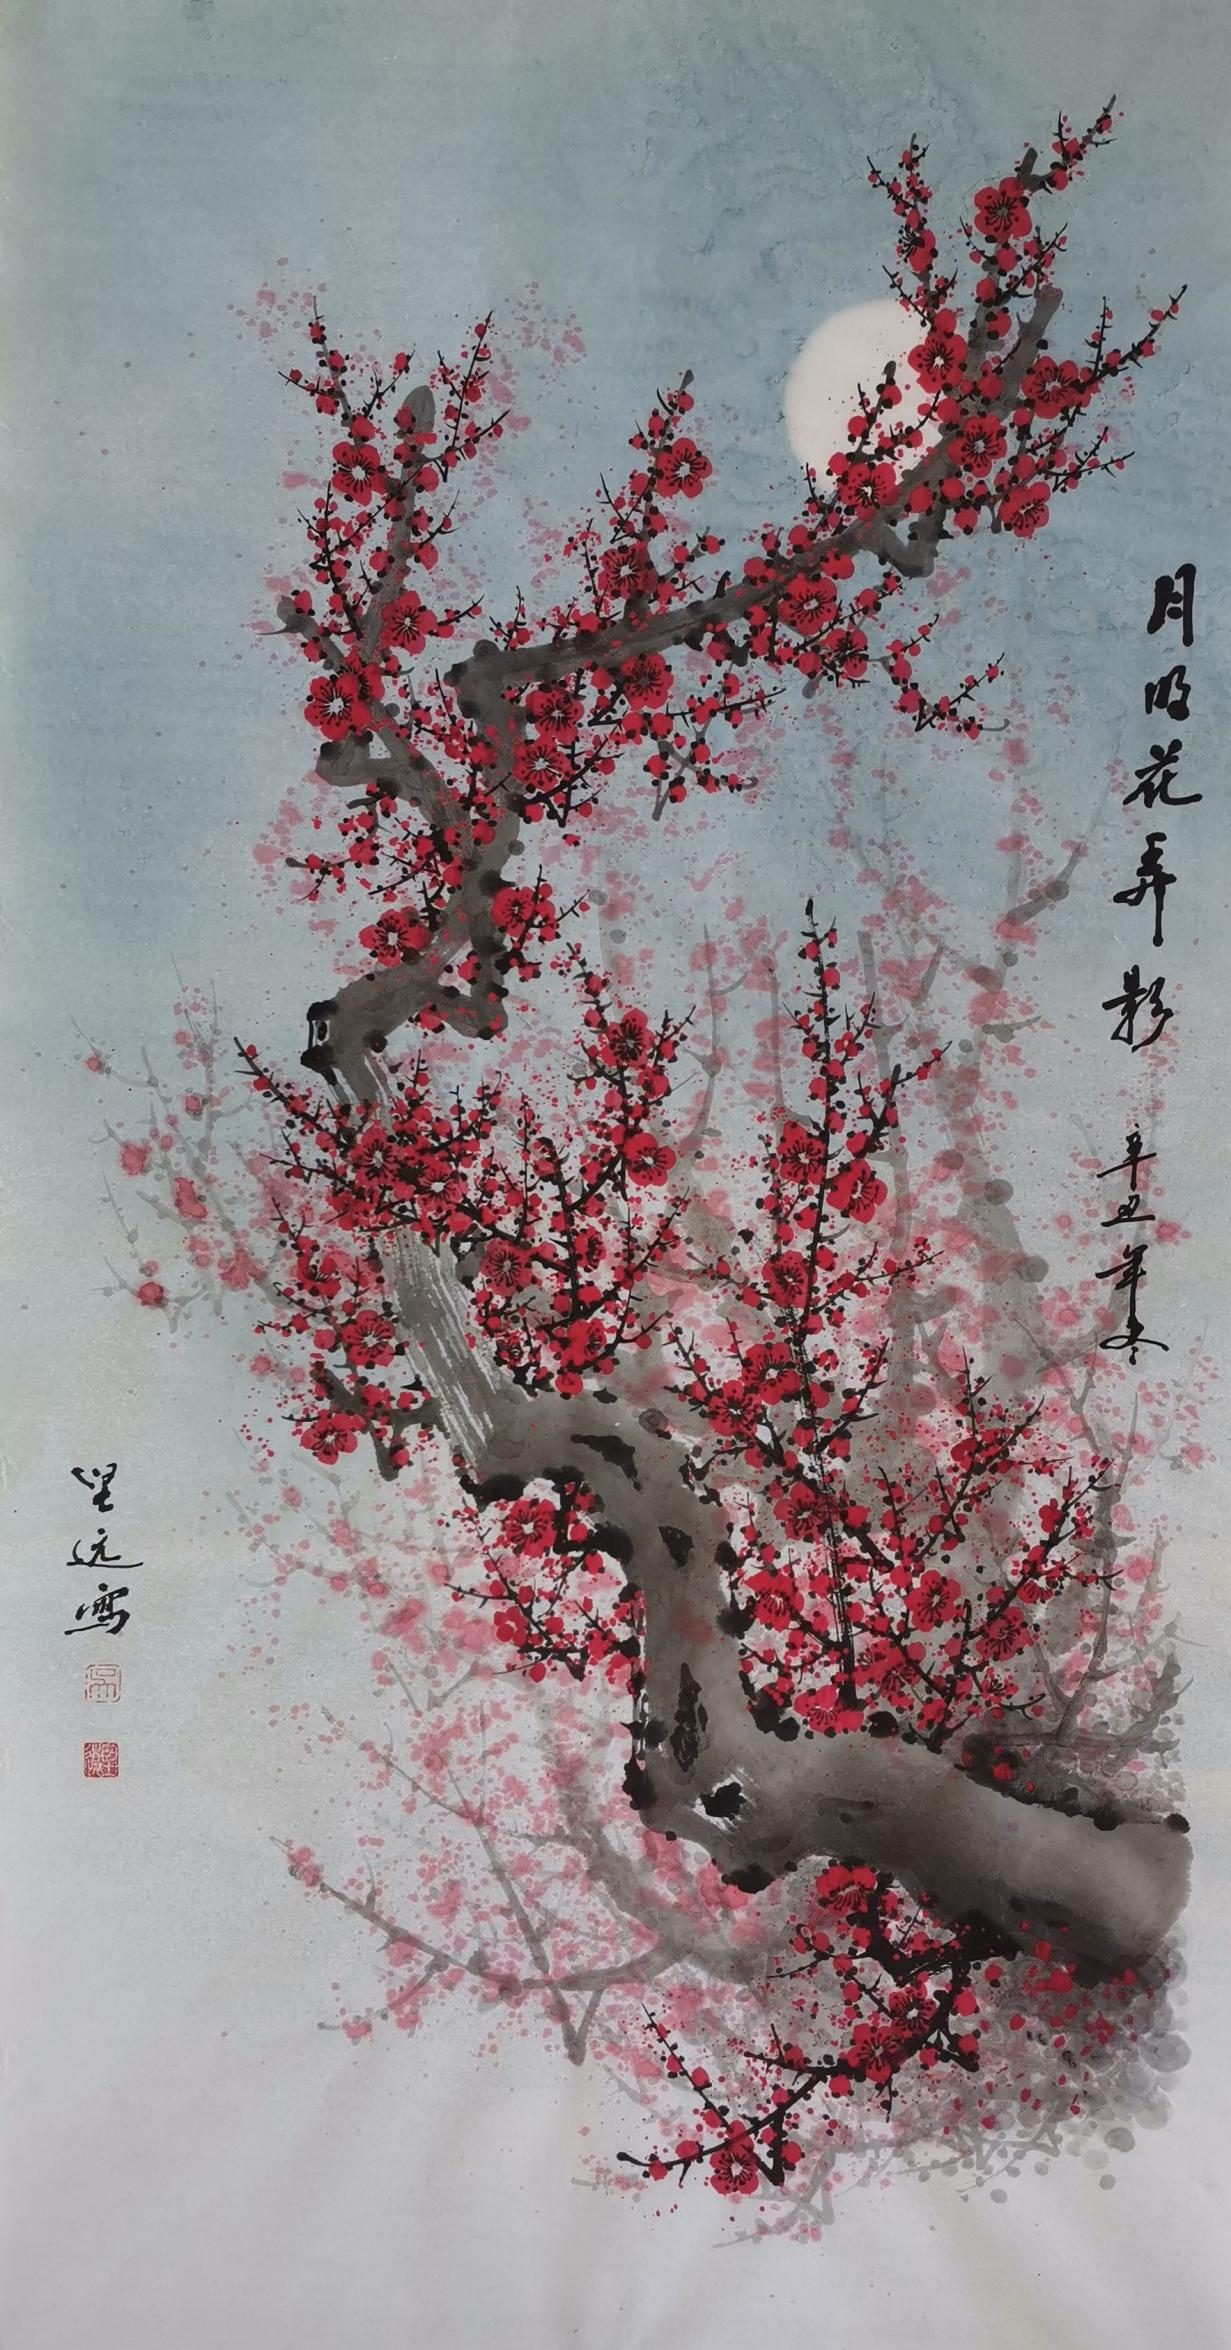 月明花弄影
辛丑年冬
坚远写